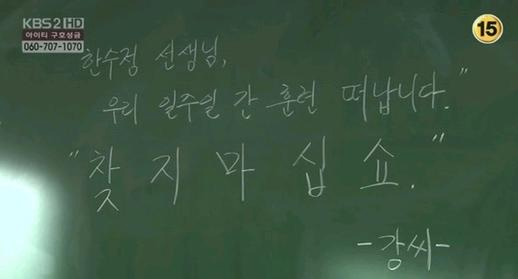 KBS2 HD
아이티 구호성금
060-707-1070
15
한수정 선생님,
우리 일주일 간 훈련 떠납니다."
"찾지마십쇼."
-강씨-